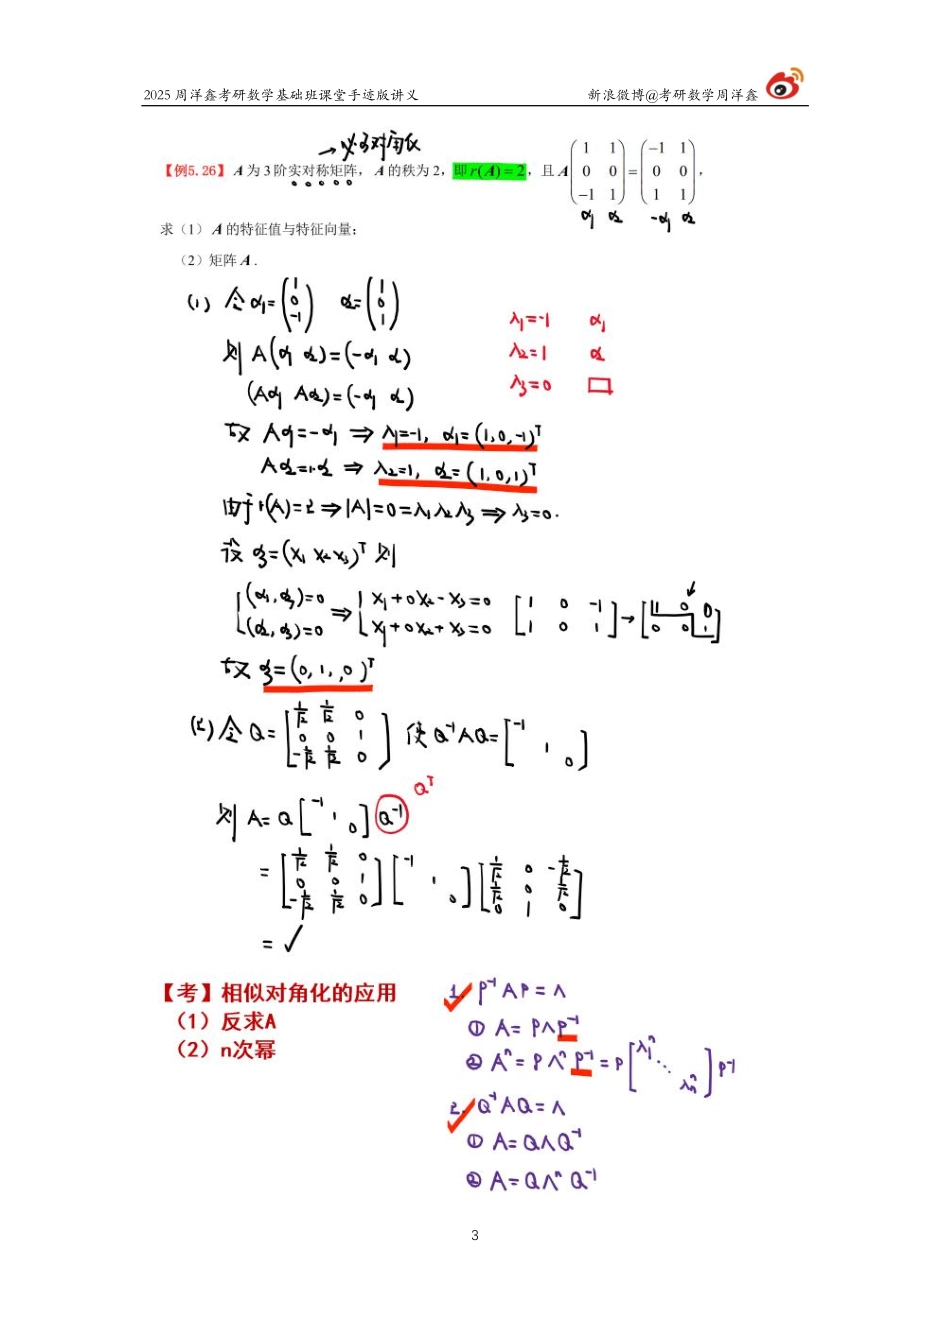 2025 周洋鑫考研数学基础班课堂手迹版讲义 新浪微博@考研数学周洋鑫
→必可对角化
【例5.26】 A 为 3 阶实对称矩阵, A 的秩为 2, 即 r(A) = 2, 且 A (1 1; 0 0; −1 1) = (−1 1; 0 0; 1 1),
α₁ α₂ -α₁ α₂
求（1） A 的特征值与特征向量;
（2）矩阵 A .
(1) 令 α₁=(1 0 -1) α₂=(1 0 1)
λ₁=-1 α₁
则 A(α₁ α₂)=(-α₁ α₂)
λ₂=1 α₂
(Aα₁ Aα₂)=(-α₁ α₂)
λ₃=0 □
故 Aα₁=-α₁ ⇒ λ₁=-1, α₁=(1,0,-1)ᵀ
Aα₂=1·α₂ ⇒ λ₂=1, α₂=(1,0,1)ᵀ
由于r(A)=2⇒|A|=0=λ₁λ₂λ₃⇒λ₃=0.
设 α₃=(x₁ x₂ x₃)ᵀ 则
{(α₁,α₃)=0 (α₂,α₃)=0 ⇒ {x₁+0x₂-x₃=0 x₁+0x₂+x₃=0 [1 0 -1; 1 0 1]→[1 0 0; 0 0 1]
故 α₃=(0,1,0)ᵀ
(2) 令 Q=[1/√2 1/√2 0; 0 0 1; -1/√2 1/√2 0] 使 Q⁻¹AQ=[-1 1 0]
Qᵀ
则 A=Q[-1 1 0]Q⁻¹
=[1/√2 1/√2 0; 0 0 1; -1/√2 1/√2 0][-1 1 0][1/√2 0 -1/√2; 1/√2 0 1/√2; 0 1 0]
=✓
【考】相似对角化的应用
（1）反求A
（2）n次幂
1. P⁻¹AP=Λ
① A=PΛP⁻¹
② Aⁿ=PΛⁿP⁻¹=P[λ₁ⁿ ⋱ λₙⁿ]P⁻¹
2. Q⁻¹AQ=Λ
① A=QΛQ⁻¹
② A=QΛⁿQ⁻¹
3